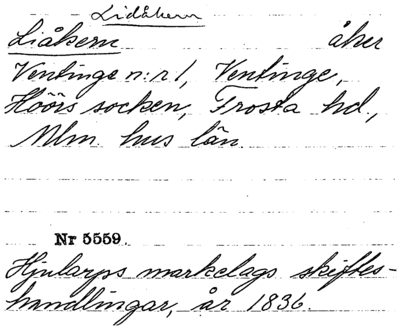 Lidåkern
Liåkern åker
Ventinge n:r 1, Ventinge,
Höörs socken, Frosta hd,
Mlm. hus län.
Nr 5559.
Hjularps markelags skiftes-
handlingar, år 1836.